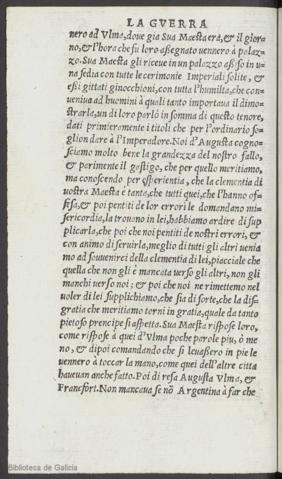 LA GVERRA
nero ad Vlma, doue già Sua Maestà era, & il gior
no, & l'hora che fu loro assegnato uennero à palaz-
zo. Sua Maestà gli riceue in un palazzo assiso in u-
na sedia con tutte le cerimonie Imperiali solite, &
essi gittati ginocchioni, con tutta l'humiltà, che con-
ueniua ad huomini à quali tanto importaua il dimo-
strarla, un di loro parlò in somma di questo tenore,
dati primieramente i titoli che per l'ordinario so-
glion dare à l'Imperadore. Noi d'Augusta cogno-
sciamo molto bene la grandezza del nostro fallo,
& parimente il gastigo, che per quello meritiamo,
ma conoscendo per esperientia, che la clementia di
uostra Maestà è tanta, che tutti quei, che l'hanno of-
fesa, & poi pentiti de lor errori le domandano mi-
sericordia, la trouono in lei, habbiamo ardire di sup
plicarla, che poi che noi pentiti de nostri errori, &
con animo di seruirla, meglio di tutti gli altri uenia
mo ad souuenirci della clementia di lei, piacciale che
quella che non gli è mancata uerso gli altri, non gli
manchi uerso noi; & poi che noi ne rimettemo nel
uoler di lei supplichiamo, che sia di sorte, che la disa
gratia che meritiamo torni in gratia, quale da tanto
pietoso prencipe si aspetta. Sua Maestà rispose loro,
come rispose à quei d'Vlma poche parole piu, ò me
no, & dipoi comandando che si leuassero in piè le
uennero à toccar la mano, come quei dell'altre città
haueuan anche fatto. Poi di resa Augusta Vlma, &
Francfort. Non mancaua se nō Argentina à far che
Biblioteca de Galicia